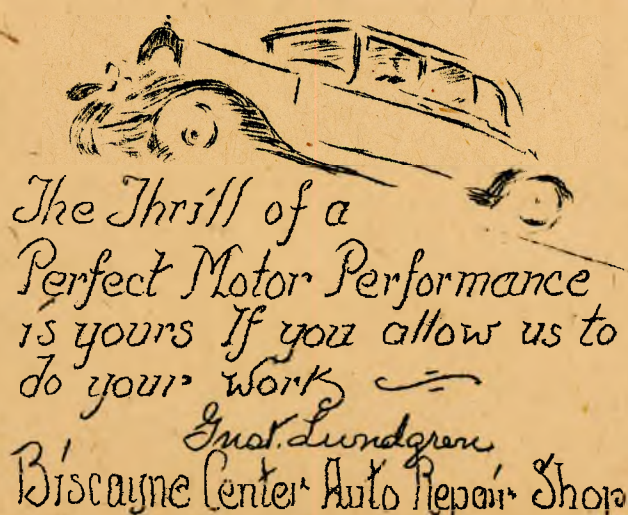 The Thrill of a
Perfect Motor Performance
is yours If you allow us to
do your work
Gust. Lundgren
Biscayne Center Auto Repair Shop